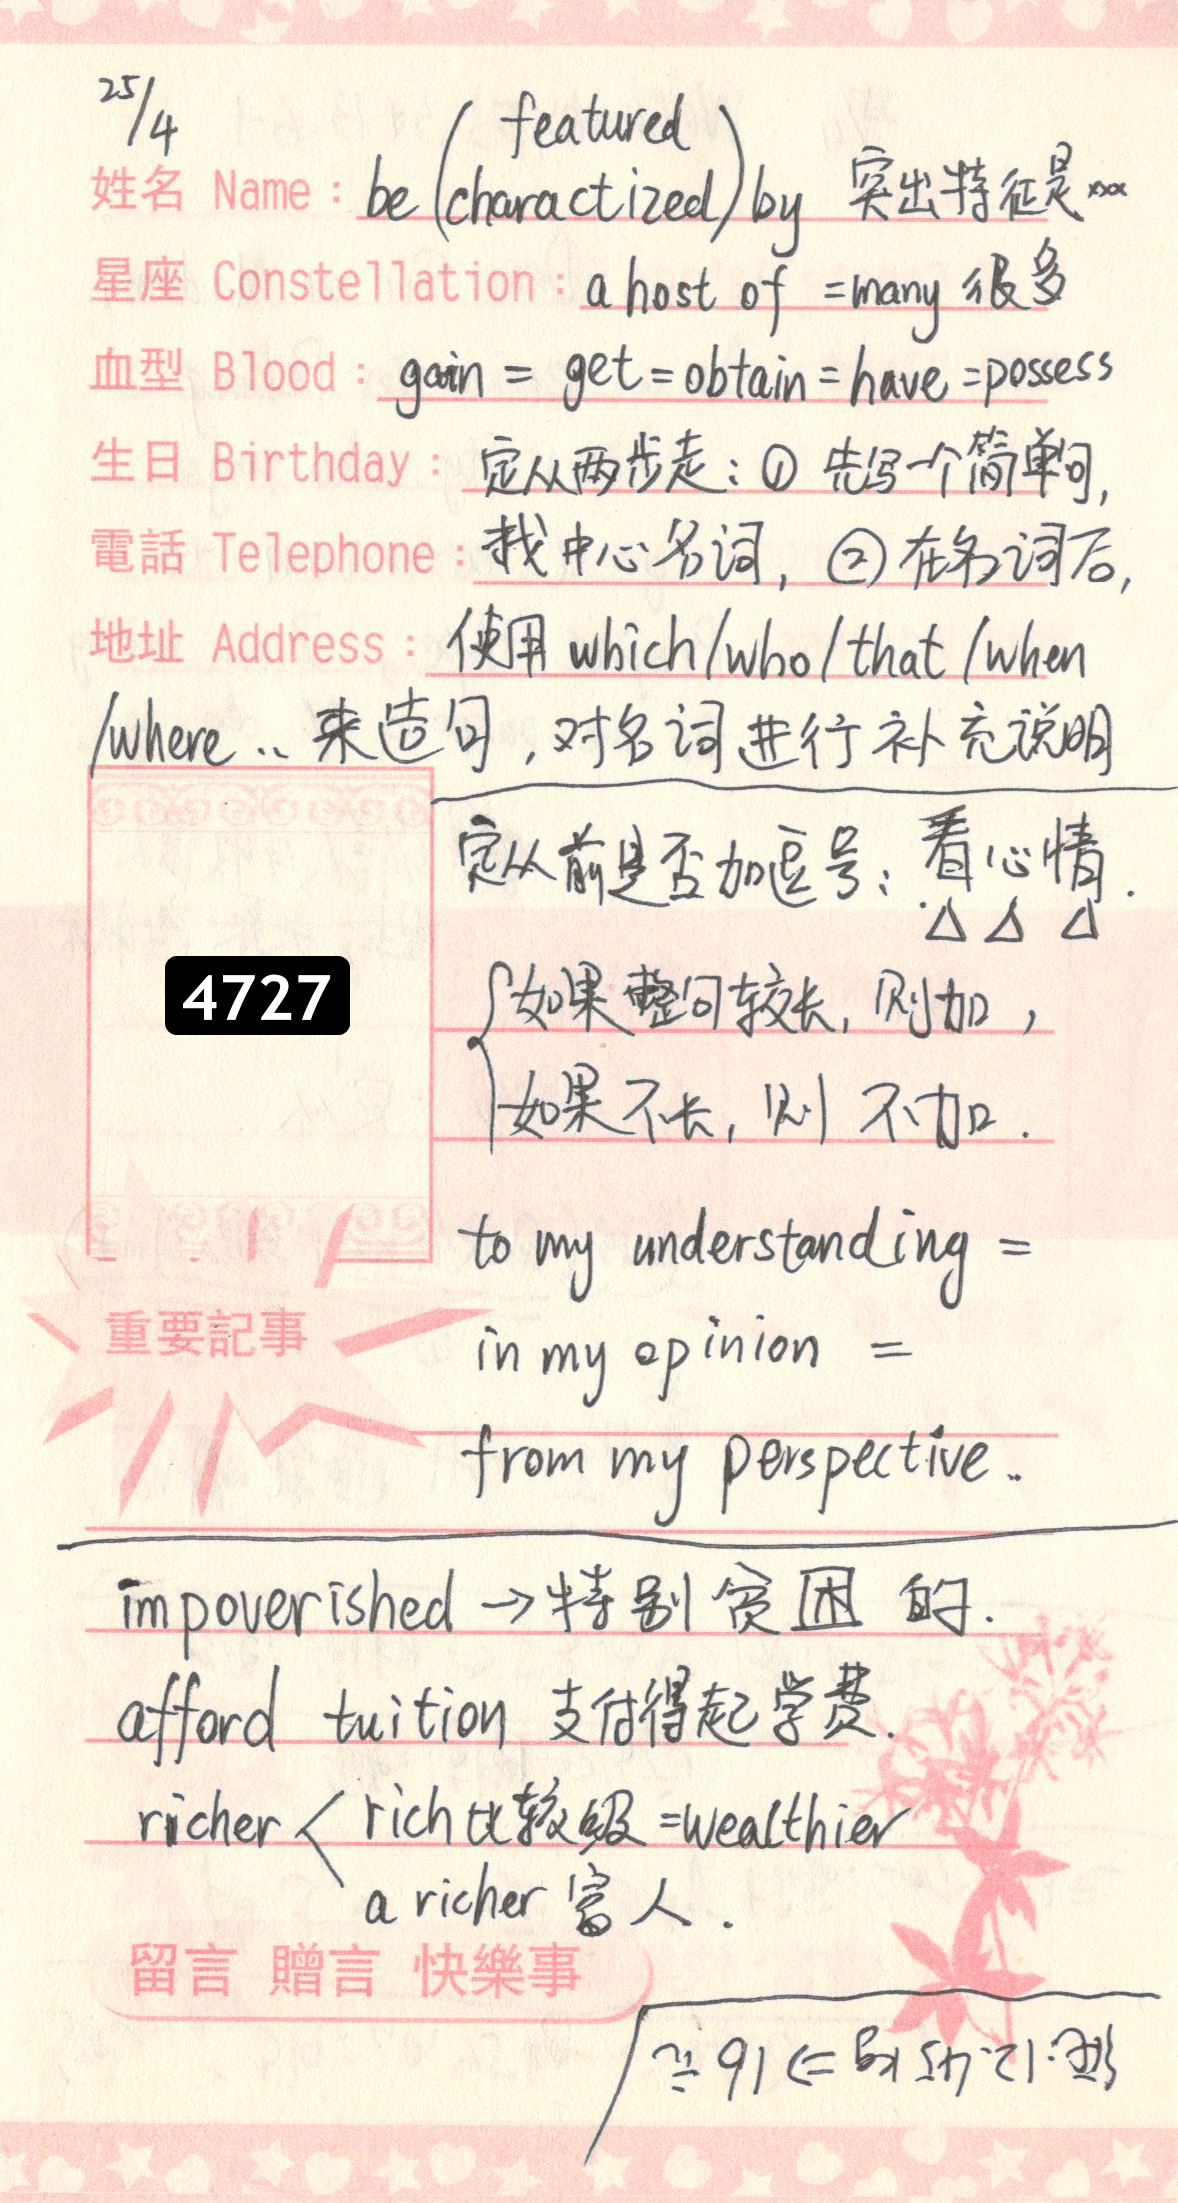 25/4
featured
姓名 Name: be (charactized) by 突出特征是xxx
星座 Constellation: a host of = many 很多
血型 Blood: gain = get = obtain = have = possess
生日 Birthday: 定从两步走: ① 先写一个简单句,
電話 Telephone: 找中心名词, ② 在名词后,
地址 Address: 使用 which/who/that/when
/where.. 来造句, 对名词进行补充说明
定从前是否加逗号: 看心情.
△ △ △
4727
如果整句较长, 则加,
如果不长, 则不加.
to my understanding =
in my opinion =
重要記事
from my perspective..
impoverished → 特别贫困的.
afford tuition 支付得起学费.
richer < rich 比较级 = wealthier
a richer 富人.
留言 贈言 快樂事
12.45 kg => 16元